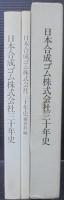 日本合成ゴム株式会社三十年史
日本合成ゴム株式会社三十年史
日本合成ゴム株式会社三十年史